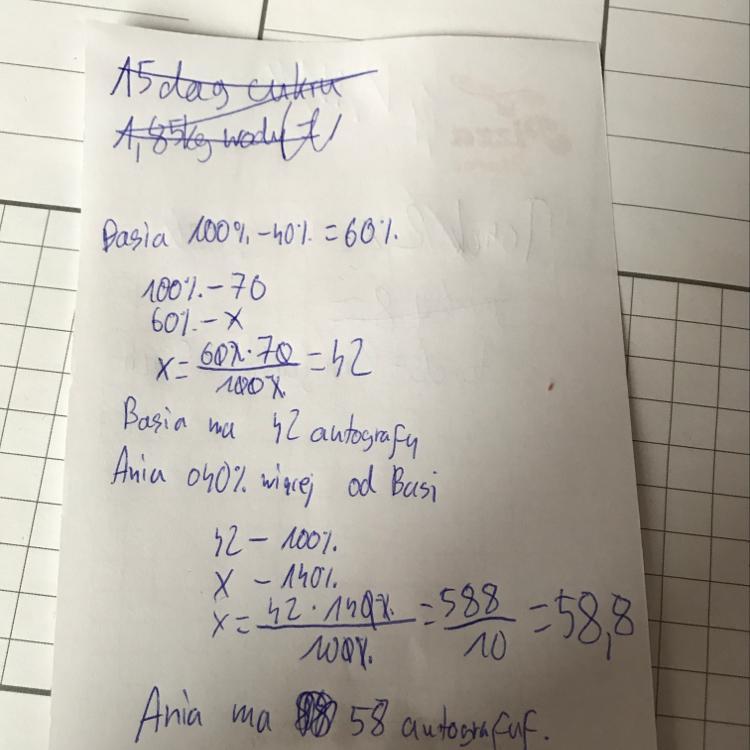 15 dag cukru
1,85kg wody
Basia 100% - 40% = 60%.
100% - 70
60% - x
x = 60%·70 / 100% = 42
Basia ma 42 autografy
Ania o 40% więcej od Basi
42 - 100%.
x - 140%.
x = 42 · 140% / 100%. = 588 / 10 = 58,8
Ania ma 58 autografuf.
Pizza